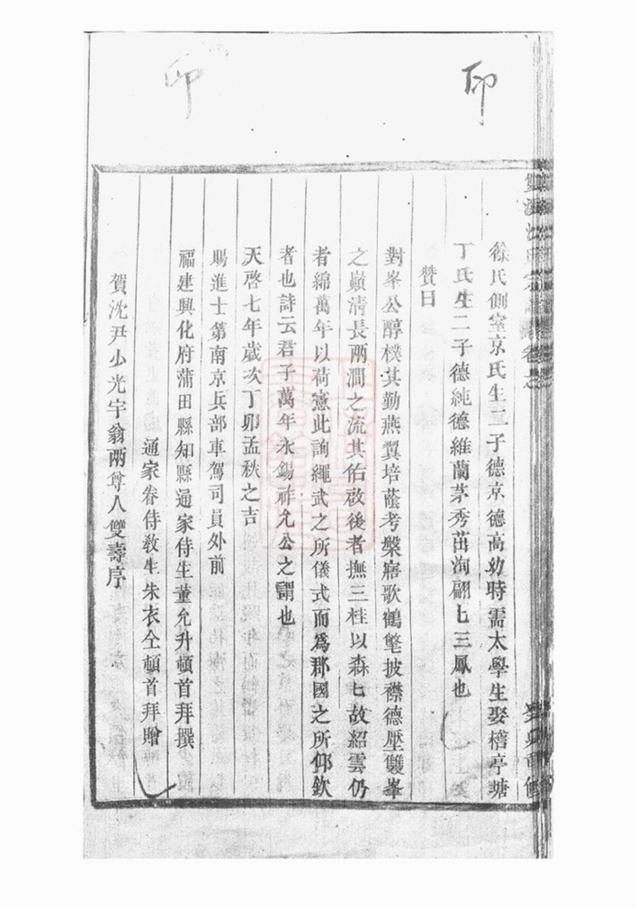 印
印
徐氏側室京氏生二子德京德高幼時需太學生娶楮亭塘
丁氏生二子德純德維蘭茅秀茁洵翩七三鳳也
贊曰
對峯公醇樸其勤燕翼培蔭考槃寤歌鶴氅披襟德壓雙峯
之巔清長兩澗之流其佑啟後者撫三桂以森七故紹雲仍
者綿萬年以荷憲此詢繩武之所儀式而爲郡國之所仰欽
者也詩云君子萬年永錫祚允公之謂也
天啓七年歲次丁卯孟秋之吉
賜進士第南京兵部車駕司員外前
福建興化府蒲田縣知縣通家侍生董允升頓首拜撰
通家眷侍教生朱衣仝頓首拜贈
賀沈尹少光宇翁兩尊人雙壽序